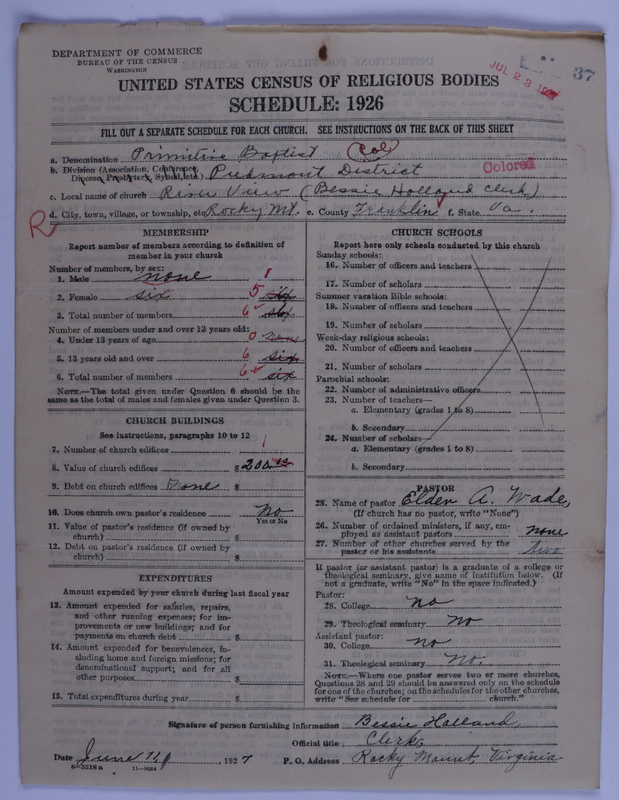 DEPARTMENT OF COMMERCE
BUREAU OF THE CENSUS
WASHINGTON
JUL 23
37
UNITED STATES CENSUS OF RELIGIOUS BODIES
SCHEDULE: 1926
FILL OUT A SEPARATE SCHEDULE FOR EACH CHURCH. SEE INSTRUCTIONS ON THE BACK OF THIS SHEET
a. Denomination Primitive Baptist (Col)
b. Division (Association, Conference, Diocese, Presbytery, Synod, etc.) Piedmont District Colored
c. Local name of church River View (Bessie Holland Clerk)
d. City, town, village, or township, etc. Rocky Mt. e. County Franklin f. State Va.
R
MEMBERSHIP
Report number of members according to definition of
member in your church
Number of members, by sex:
1. Male none 1
2. Female six 5 six
3. Total number of members 6 six
Number of members under and over 13 years old:
4. Under 13 years of age 0 none
5. 13 years old and over 6 six
6. Total number of members 6 six
NOTE.—The total given under Question 6 should be the
same as the total of males and females given under Question 3.
CHURCH BUILDINGS
See instructions, paragraphs 10 to 12
7. Number of church edifices 1
8. Value of church edifices $ 200.
9. Debt on church edifices None $
10. Does church own pastor's residence No
Yes or No
11. Value of pastor's residence (if owned by
church) $
12. Debt on pastor's residence (if owned by
church) $
EXPENDITURES
Amount expended by your church during last fiscal year
13. Amount expended for salaries, repairs,
and other running expenses; for im-
provements or new buildings; and for
payments on church debt $
14. Amount expended for benevolences, in-
cluding home and foreign missions; for
denominational support; and for all
other purposes $
15. Total expenditures during year $
CHURCH SCHOOLS
Report here only schools conducted by this church
Sunday schools:
16. Number of officers and teachers
17. Number of scholars
Summer vacation Bible schools:
18. Number of officers and teachers
19. Number of scholars
Week-day religious schools:
20. Number of officers and teachers
21. Number of scholars
Parochial schools:
22. Number of administrative officers
23. Number of teachers—
a. Elementary (grades 1 to 8)
b. Secondary
24. Number of scholars—
a. Elementary (grades 1 to 8)
b. Secondary
PASTOR
25. Name of pastor Elder A. Wade,
(If church has no pastor, write "None")
26. Number of ordained ministers, if any, em-
ployed as assistant pastors none
27. Number of other churches served by the
pastor or his assistants two
If pastor (or assistant pastor) is a graduate of a college or
theological seminary, give name of institution below. (If
not a graduate, write "No" in the space indicated.)
Pastor:
28. College No
29. Theological seminary No
Assistant pastor:
30. College no
31. Theological seminary No.
NOTE.—Where one pastor serves two or more churches,
Questions 28 and 29 should be answered only on the schedule
for one of the churches; on the schedules for the other churches,
write "See schedule for church."
Signature of person furnishing information Bessie Holland,
Official title Clerk,
Date June 1927 P. O. Address Rocky Mount, Virginia
8-5518a 11-9054